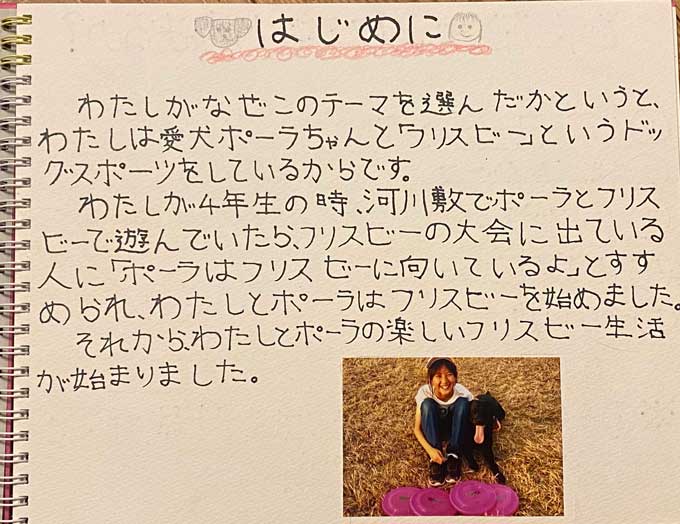 はじめに
わたしがなぜこのテーマを選んだかというと、
わたしは愛犬ポーラちゃんと「フリスビー」というドッ
グスポーツをしているからです。
わたしが4年生の時、河川敷でポーラとフリス
ビーで遊んでいたら、フリスビーの大会に出ている
人に「ポーラはフリスビーに向いているよ」とすす
められ、わたしとポーラはフリスビーを始めました。
それから、わたしとポーラの楽しいフリスビー生活
が始まりました。